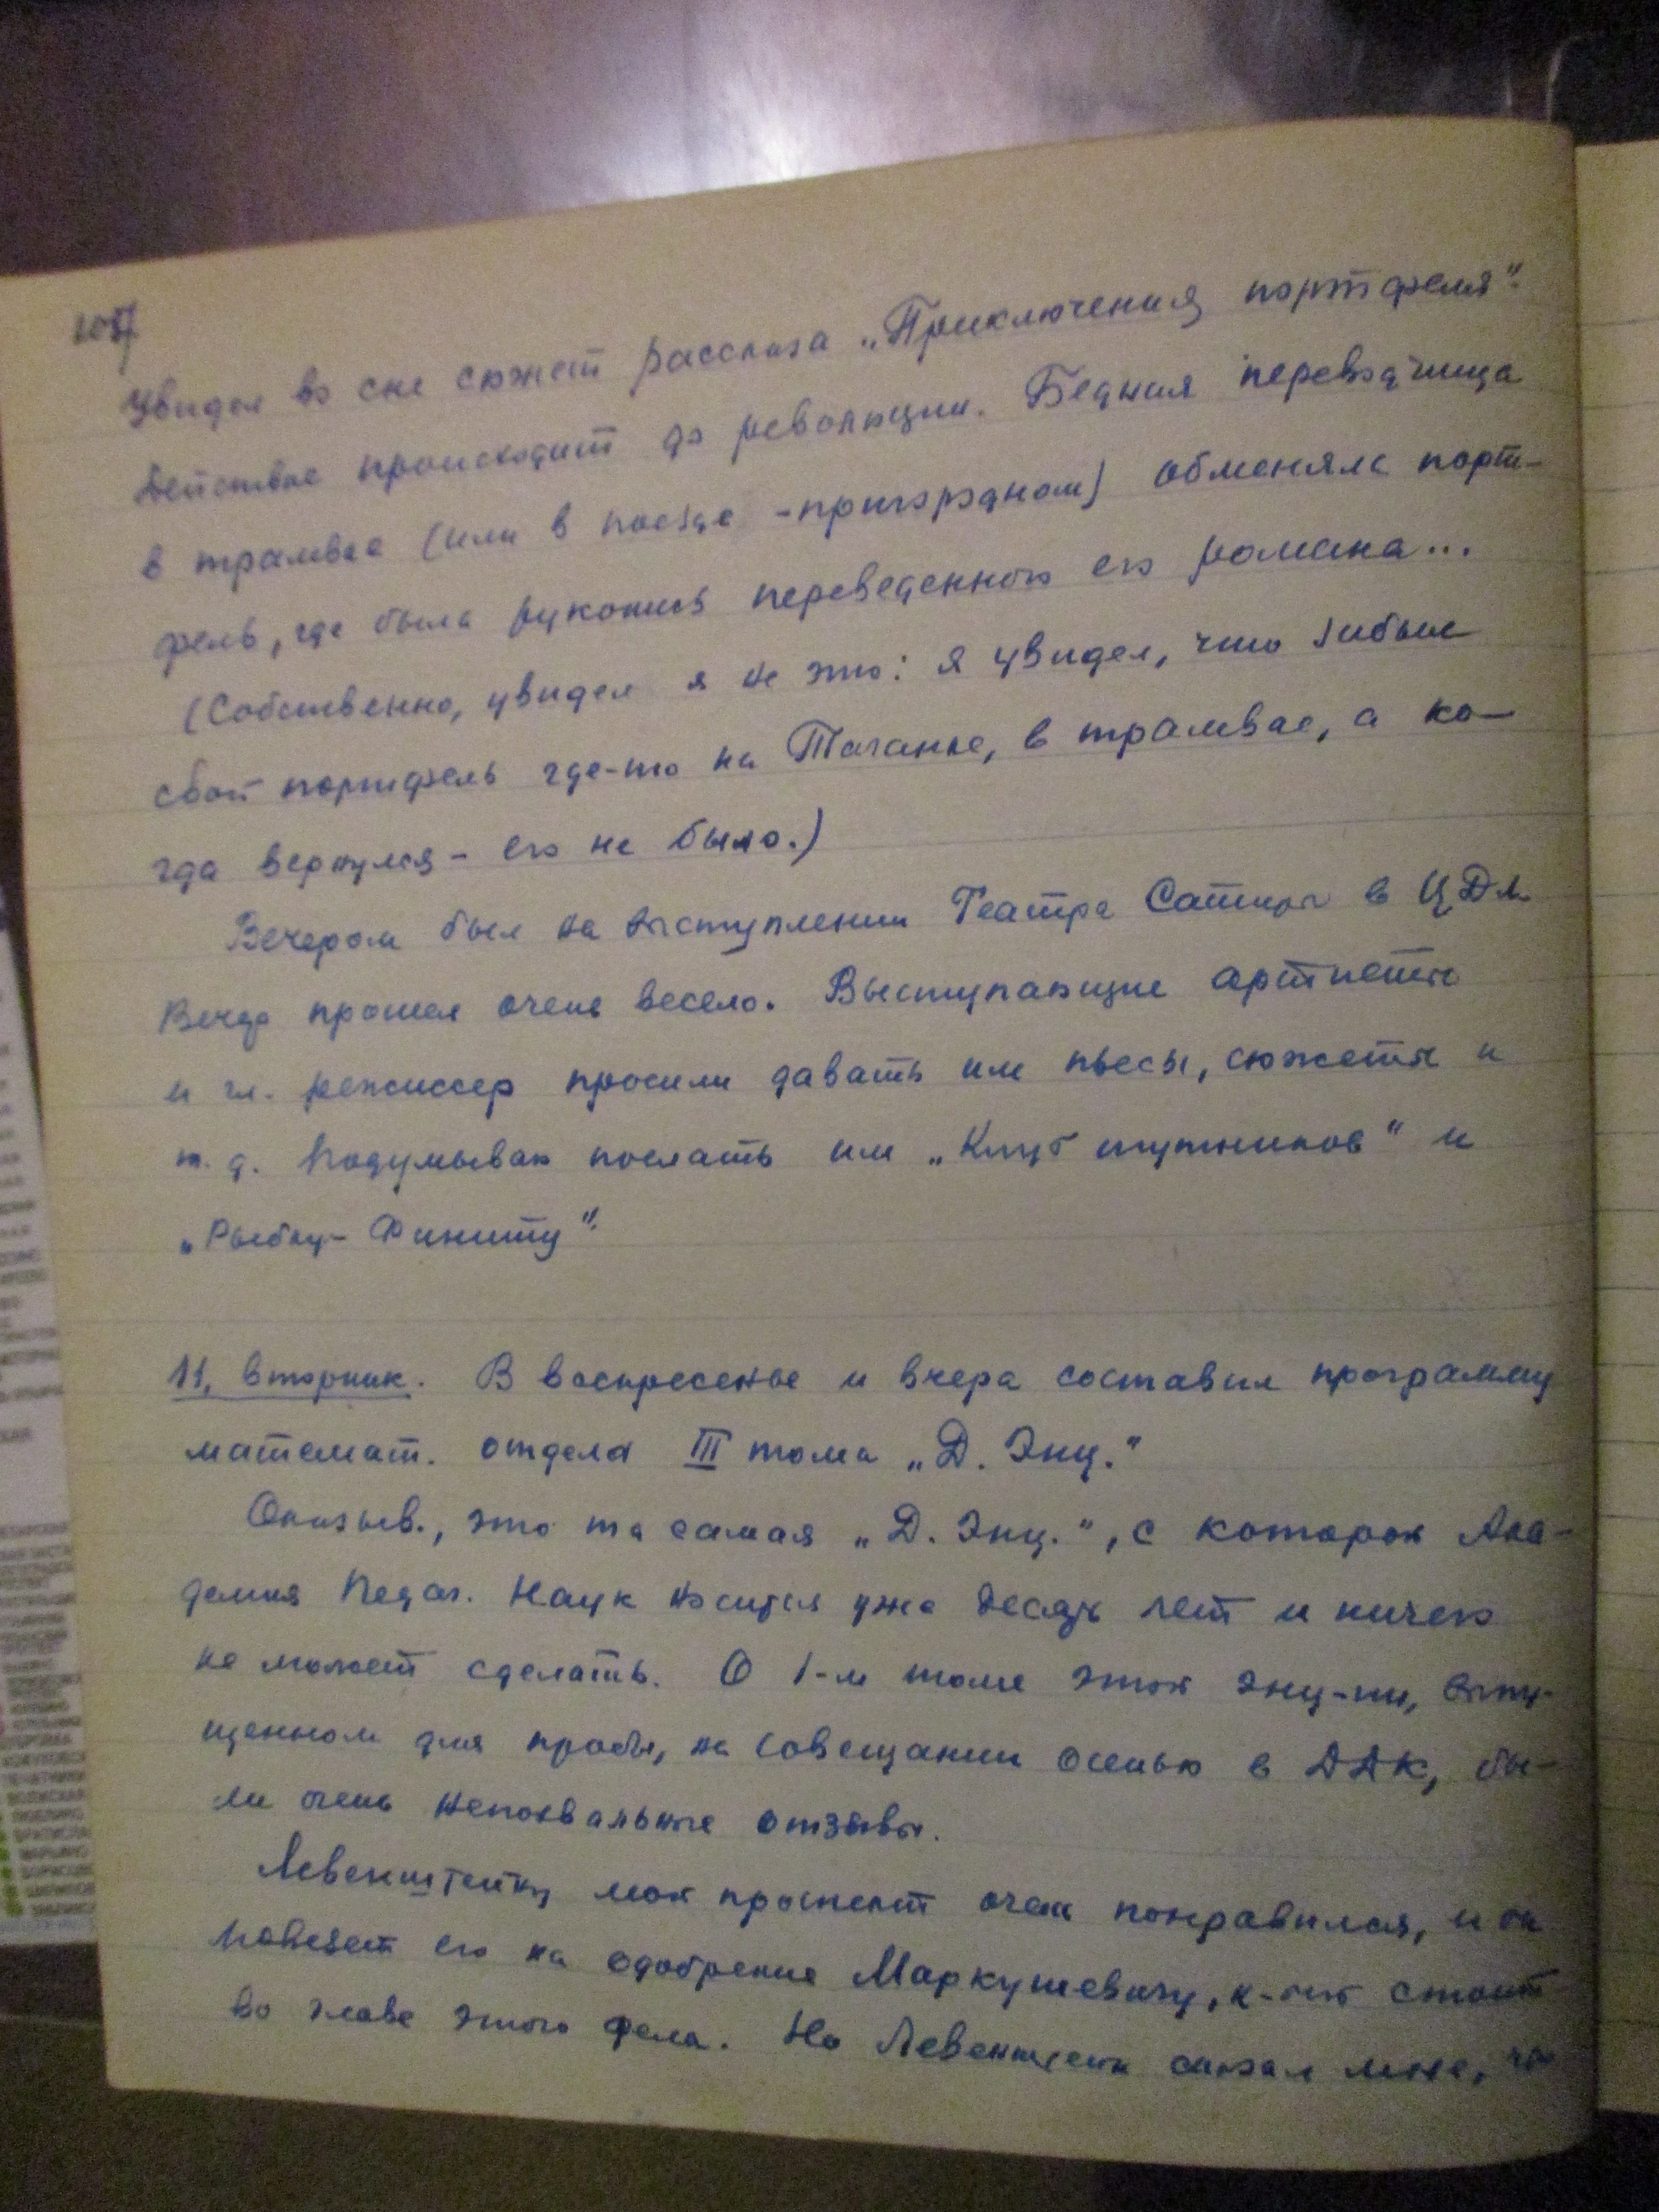 107
Увидел во сне сюжет рассказа „Приключения портфеля".
Действие происходит до революции. Бедная переводчица
в трамвае (или в поезде - пригородном) обменяла порт-
фель, где была рукопись переведенного ею романа...
(Собственно, увидел я не это: я увидел, что забыл
свой портфель где-то на Таганке, в трамвае, а ко-
гда вернулся - его не было.)
Вечером был на выступлении Театра Сатиры в ЦДЛ.
Вечер прошел очень весело. Выступающие артисты
и гл. режиссер просили давать им пьесы, сюжеты и
т. д. Подумываю послать им „Клуб шутников" и
„Рыбку-Финиту".
11, вторник. В воскресенье и вчера составил программу
математ. отдела III тома „Д. Энц."
Оказыв., это та самая „Д. Энц.", с которой Ака-
демия Педаг. Наук носится уже десять лет и ничего
не может сделать. О 1-м томе этой энц-ии, выпу-
щенном для пробы, на совещании осенью в ДДК, бы-
ли очень непохвальные отзывы.
Левенштейну мой проспект очень понравился, и он
повезет его на одобрение Маркушевичу, к-рый стоит
во главе этого дела. Но Левенштейн сказал мне, что